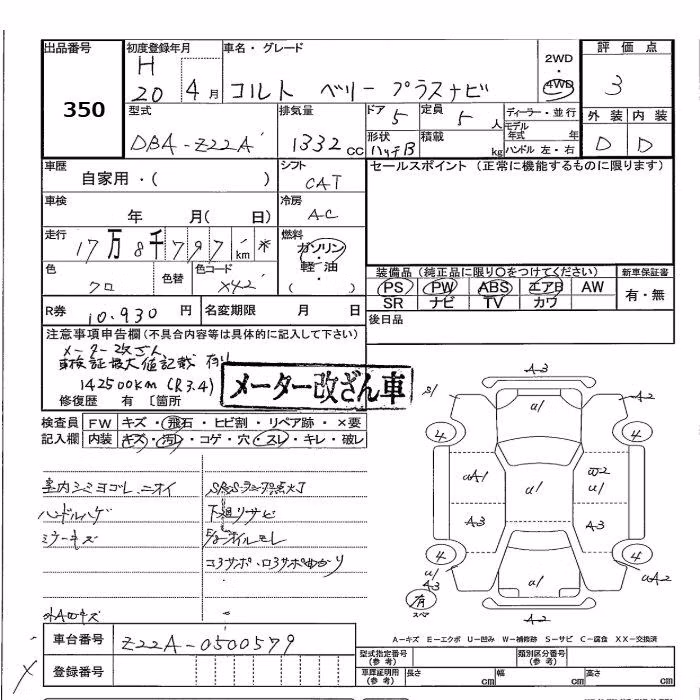 出品番号 初度登録年月 車名・グレード 2WD・4WD 評価点
350 H 20 4月 コルト ベリープラスナビ 3
型式 排気量 ドア 5 定員 5人 ディーラー・並行 外装 内装
DBA-Z22A 1332cc 形状 ハッチB 積載 kg モデル年式 年 ハンドル 左・右 D D
車歴 シフト セールスポイント (正常に機能するものに限ります)
自家用・( ) CAT
車検 冷房
年 月( 日) AC
走行 燃料
17万8千797km * ガソリン・軽油
色 色替 色コード 装備品 (純正品に限り○をつけてください) 新車保証書
クロ X42 PS PW ABS エアB AW 有・無
R券 10.930円 名変期限 月 日 SR ナビ TV カワ
注意事項申告欄 (不具合内容等は具体的に記入して下さい) 後日品
メーター改ざん
車検証最大値記載 有り
142500km (R3.4) メーター改ざん車
修復歴 有 [箇所
検査員 FW キズ・飛石・ヒビ割・リペア跡・×要
記入欄 内装 キズ・汚レ・コゲ・穴・スレ・キレ・破レ
室内シミヨゴレ、ニオイ SRSランプ点灯
ハンドルハゲ 下廻リサビ
ミラーキズ E/gオイルモレ
コアサポ、ロアサポ曲がり
外Aのキズ
A3
A2
U1
4 4
UA1 U1 W2 U1
A3 A3
4 4
U1 A3 UA2
有 スペア U1
A2
A-キズ E-エクボ U-凹み W-補修跡 S-サビ C-腐食 XX-交換済
車台番号 Z22A-0500579 型式指定番号(参考) 類別区分番号(参考)
登録番号 車庫証明用(参考) 長さ cm 幅 cm 高さ cm